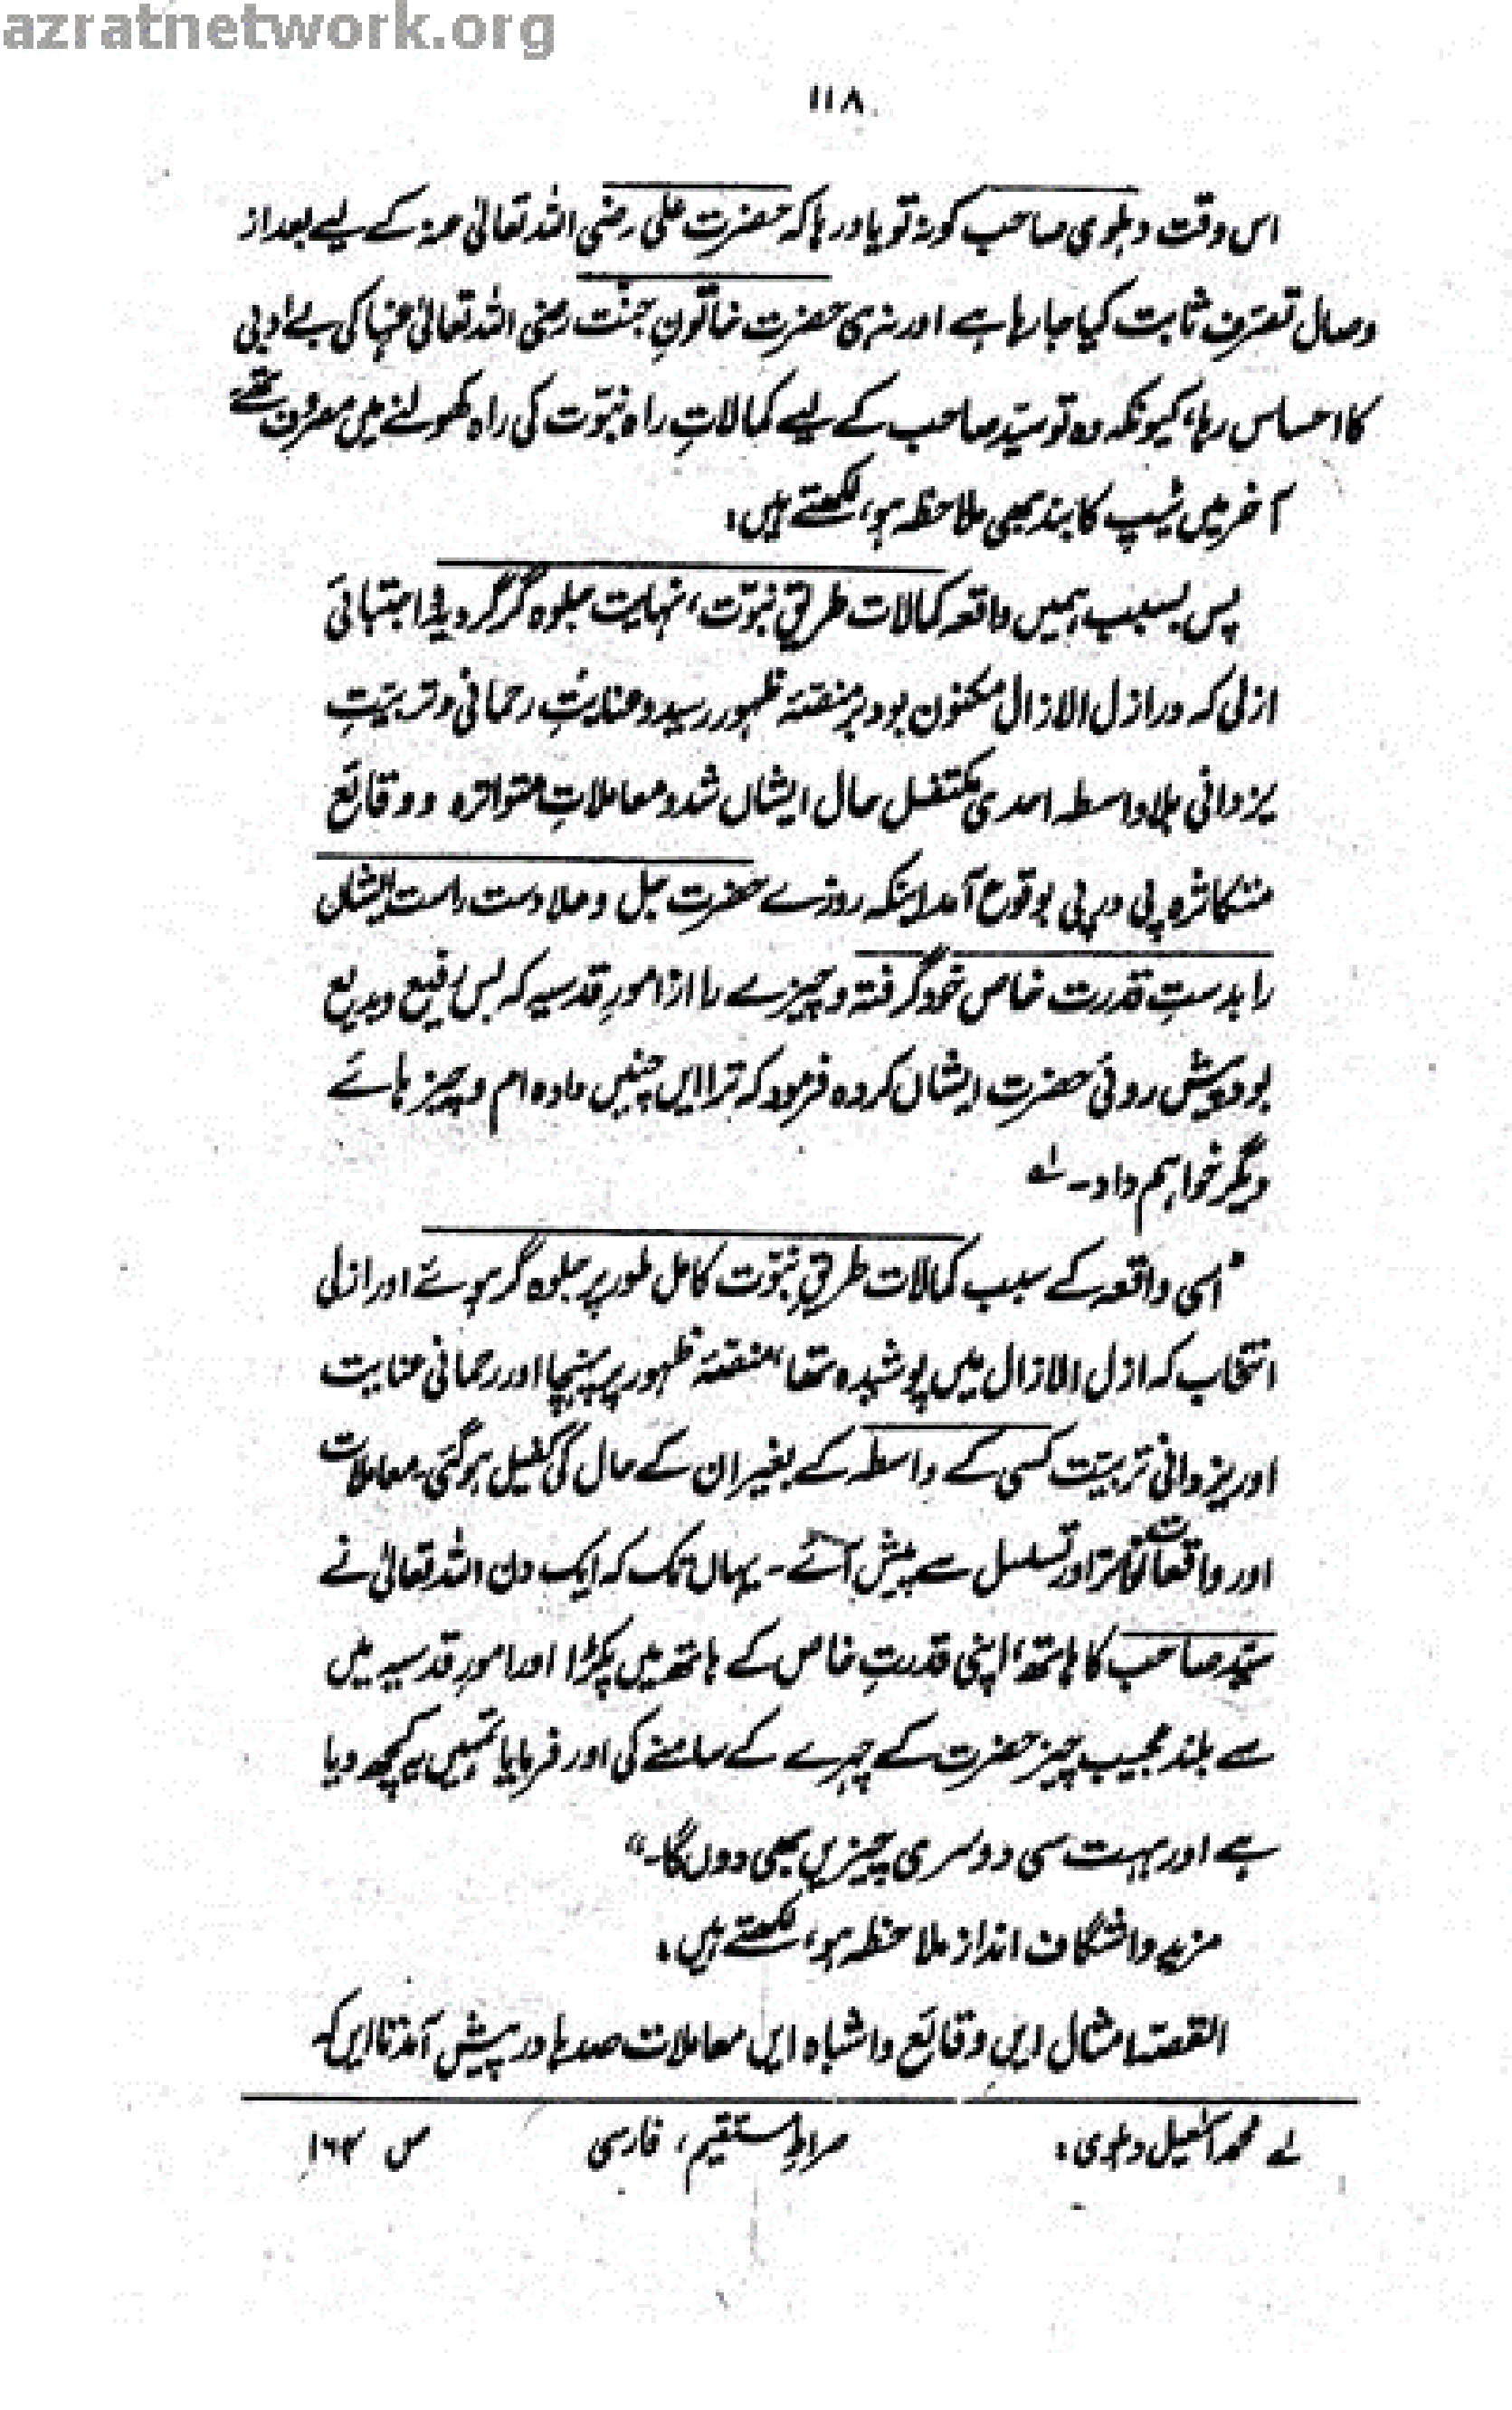 azratnetwork.org
۱۱۸
اس وقت دہلوی صاحب کو نہ تو یاد رہا کہ حضرت علی رضی اللہ تعالیٰ عنہ کے لیے بعد از
وصال تصرّف ثابت کیا جا رہا ہے اور نہ ہی حضرت خاتونِ جنّت رضی اللہ تعالیٰ عنہا کی بے ادبی
کا احساس رہا، کیونکہ وہ تو سیّد صاحب کے لیے کمالاتِ راہ نبوّت کی راہ کھولنے میں مصروف تھے
آخر میں ٹیپ کا بند بھی ملاحظہ ہو، لکھتے ہیں:
پس بسبب ہمیں واقعہ کمالات طریقِ نبوّت، نہایت جلوہ گر گردید اجتبائی
ازلی کہ در ازل الآزال مکنون بود بر منصّۂ ظہور رسید و عنایتِ رحمانی و تربیّتِ
یزدانی بلا واسطہ احدی مکتفل حال ایشاں شد و معاملاتِ متواترہ و وقائع
متکاثرہ پی در پی بوقوع آمد اینکہ روزے حضرت جل و علا دست راست ایشاں
را بدستِ قدرت خاص خود گرفتہ و چیزے را از امورِ قدسیہ کہ بس رفیع و بدیع
بود پیش روئی حضرت ایشاں کردہ فرمود کہ ترا ایں چنیں دادہ ام و چیز ہائے
دیگر خواہم داد۔ لہ
"اسی واقعہ کے سبب کمالات طریقِ نبوّت کامل طور پر جلوہ گر ہوئے اور ازلی
انتخاب کہ ازل الآزال میں پوشیدہ تھا، منصّۂ ظہور پر پہنچا اور رحمانی عنایت
اور یزدانی تربیّت کسی کے واسطہ کے بغیر ان کے حال کی کفیل ہو گئی۔ معاملات
اور واقعات تواتر اور تسلسل سے پیش آئے۔ یہاں تک کہ ایک دن اللہ تعالیٰ نے
سیّد صاحب کا ہاتھ، اپنی قدرتِ خاص کے ہاتھ میں پکڑا اور امورِ قدسیہ میں
سے بلند عجیب چیز حضرت کے چہرے کے سامنے کی اور فرمایا تمہیں یہ کچھ دیا
ہے اور بہت سی دوسری چیزیں بھی دوں گا۔"
مزید واشگاف انداز ملاحظہ ہو، لکھتے ہیں:
القصّہ امثال ایں وقائع و اشباہ ایں معاملات صدہا در پیش آمد تا ایں کہ
لے محمد اسمٰعیل دہلوی: صراط مستقیم، فارسی ص ۱۶۴